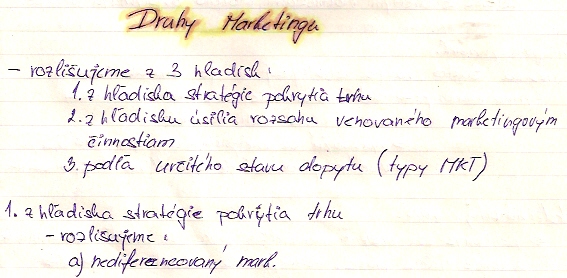 Druhy Marketingu
- rozlišujeme z 3 hladísk:
1. z hľadiska stratégie pokrytia trhu
2. z hľadiska úsilia rozsahu venovaného marketingovým
činnostiam
3. podľa určitého stavu dopytu (typy MKT)
1. z hľadiska stratégie pokrytia trhu
- rozlišujeme:
a) nediferencovaný mark.